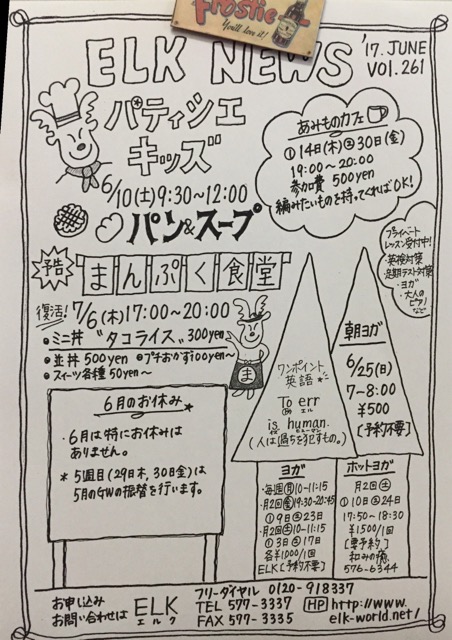 Frostie
You'll love it!
ELK NEWS
'17. JUNE
VOL.261
パティシエ
キッズ
6/10(土)9:30〜12:00
パン&スープ
あみものカフェ
①14日(木)②30日(金)
19:00〜20:00
参加費 500yen
編みたいものを持ってくればOK!
プライベート
レッスン受付中!
・英検対策
・定期テスト対策
・ヨガ
・大人の
ピアノ
など
予告 まんぷく食堂
復活! 7/6(木)17:00〜20:00
●ミニ丼 "タコライス" 300yen
●並丼 500yen ●プチおかず100yen〜
●スイーツ各種 50yen〜
ま
6月のお休み
・6月は特にお休みは
ありません。
* 5週目(29日木,30日金)は
5月のGWの振替を行います。
ワンポイント
英語
To err
エル
is human.
イズ ヒューマン
(人は過ちを犯すもの。)
朝ヨガ
6/25(日)
7〜8:00
¥500
[予約不要]
ヨガ
・毎週(月)10-11:15
・月2回(金)19:30-20:45
①9日②23日
・月2回(土)10-11:15
①3日②17日
各¥1000/1回
ELK[予約不要]
ホットヨガ
月2回(土)
①10日②24日
17:50-18:30
¥1,500/1回
[要予約]
和みの湯
576-6344
お申し込み
お問い合わせは
ELK
エルク
フリーダイヤル 0120-918337
TEL 577-3337
FAX 577-3335
HP http://www.
elk-world.net/